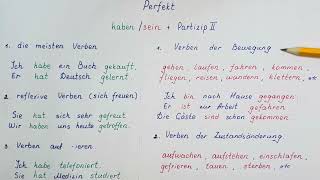 Perfekt
haben / sein + Partizip II
1. die meisten Verben
Ich habe ein Buch gekauft.
Er hat Deutsch gelernt.
2. reflexive Verben (sich freuen)
Sie hat sich sehr gefreut
Wir haben uns heute getroffen.
3. Verben auf -ieren
Ich habe telefoniert.
Sie hat Medizin studiert
1. Verben der Bewegung
gehen, laufen, fahren, kommen,
fliegen, reisen, wandern, klettern,
Ich bin nach Hause gegangen
Er ist zur Arbeit gefahren
Die Gäste sind schon gekommen.
2. Verben der Zustandsänderung.
aufwachen, aufstehen, einschlafen,
gefrieren, tauen, sterben,